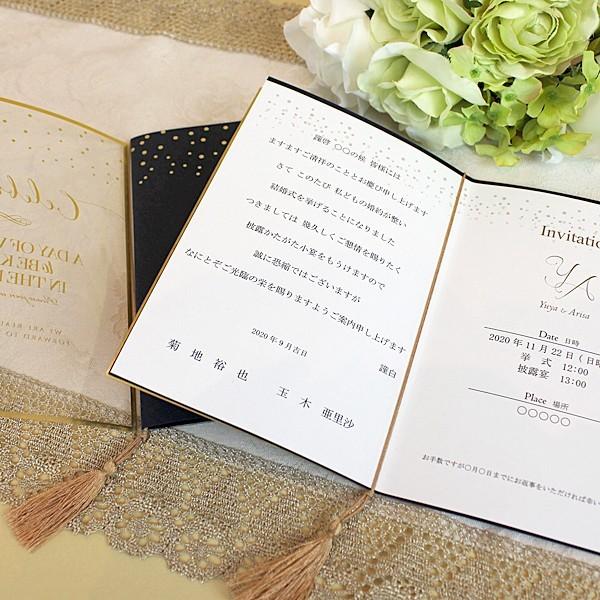 Celeb
A DAY OF
to BE K
IN THE
WE ARE REAL
FORWARD TO
謹啓 〇〇の候 皆様には
ますますご清祥のこととお慶び申し上げます
さて このたび 私どもの婚約が整い
結婚式を挙げることになりました
つきましては 幾久しくご懇情を賜りたく
披露かたがた小宴をもうけますので
誠に恐縮ではございますが
なにとぞご光臨の栄を賜りますようご案内申し上げます
謹白
2020年9月吉日
菊地 裕也
玉木 亜里沙
Invitatio
YA
Yuya & Arisa
Date 日時
2020年11月22日(日時
挙式 12:00
披露宴 13:00
Place 場所
〇〇〇〇〇
お手数ですが〇月〇日までにお返事をいただければ幸い